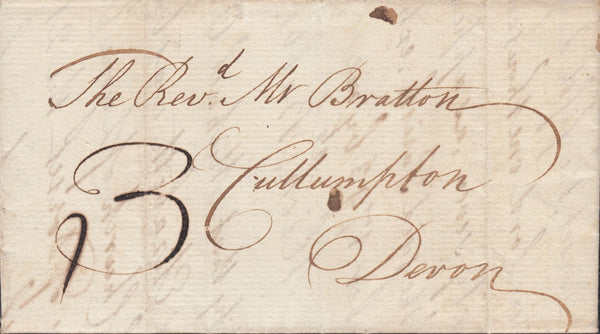 The Revd. Mr Bratton
Cullumpton
3
Devon